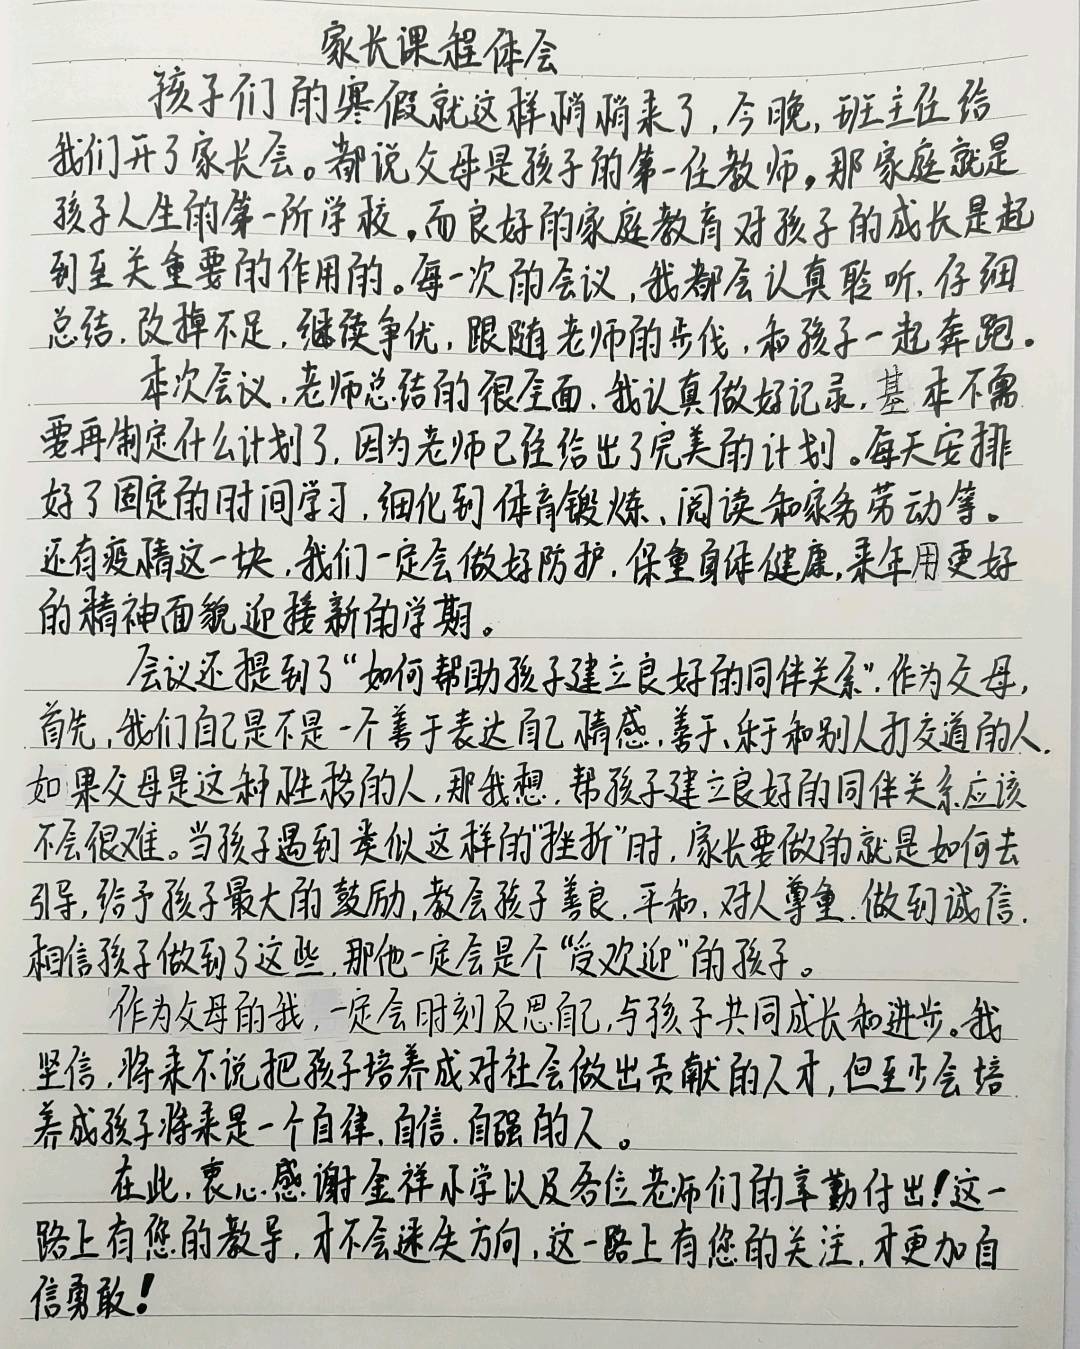 家长课程体会
孩子们的寒假就这样悄悄来了，今晚，班主任给
我们开了家长会。都说父母是孩子的第一任教师，那家庭就是
孩子人生的第一所学校，而良好的家庭教育对孩子的成长是起
到至关重要的作用的。每一次的会议，我都会认真聆听、仔细
总结，改掉不足，继续争优，跟随老师的步伐，和孩子一起奔跑。
本次会议，老师总结的很全面，我认真做好记录，基本不需
要再制定什么计划了，因为老师已经给出了完美的计划。每天安排
好了固定的时间学习，细化到体育锻炼、阅读和家务劳动等。
还有疫情这一块，我们一定会做好防护，保重身体健康，来年用更好
的精神面貌迎接新的学期。
会议还提到了“如何帮助孩子建立良好的同伴关系”，作为父母，
首先，我们自己是不是一个善于表达自己情感，善于、乐于和别人打交道的人，
如果父母是这种性格的人，那我想，帮孩子建立良好的同伴关系应该
不会很难。当孩子遇到类似这样的“挫折”时，家长要做的就是如何去
引导，给予孩子最大的鼓励，教会孩子善良，平和，对人尊重，做到诚信，
相信孩子做到了这些，那他一定会是个“受欢迎”的孩子。
作为父母的我，一定会时刻反思自己，与孩子共同成长和进步。我
坚信，将来不说把孩子培养成对社会做出贡献的人才，但至少会培
养成孩子将来是一个自律、自信、自强的人。
在此，衷心感谢金祥小学以及各位老师们的辛勤付出！这一
路上有您的教导，才不会迷失方向，这一路上有您的关注，才更加自
信勇敢！